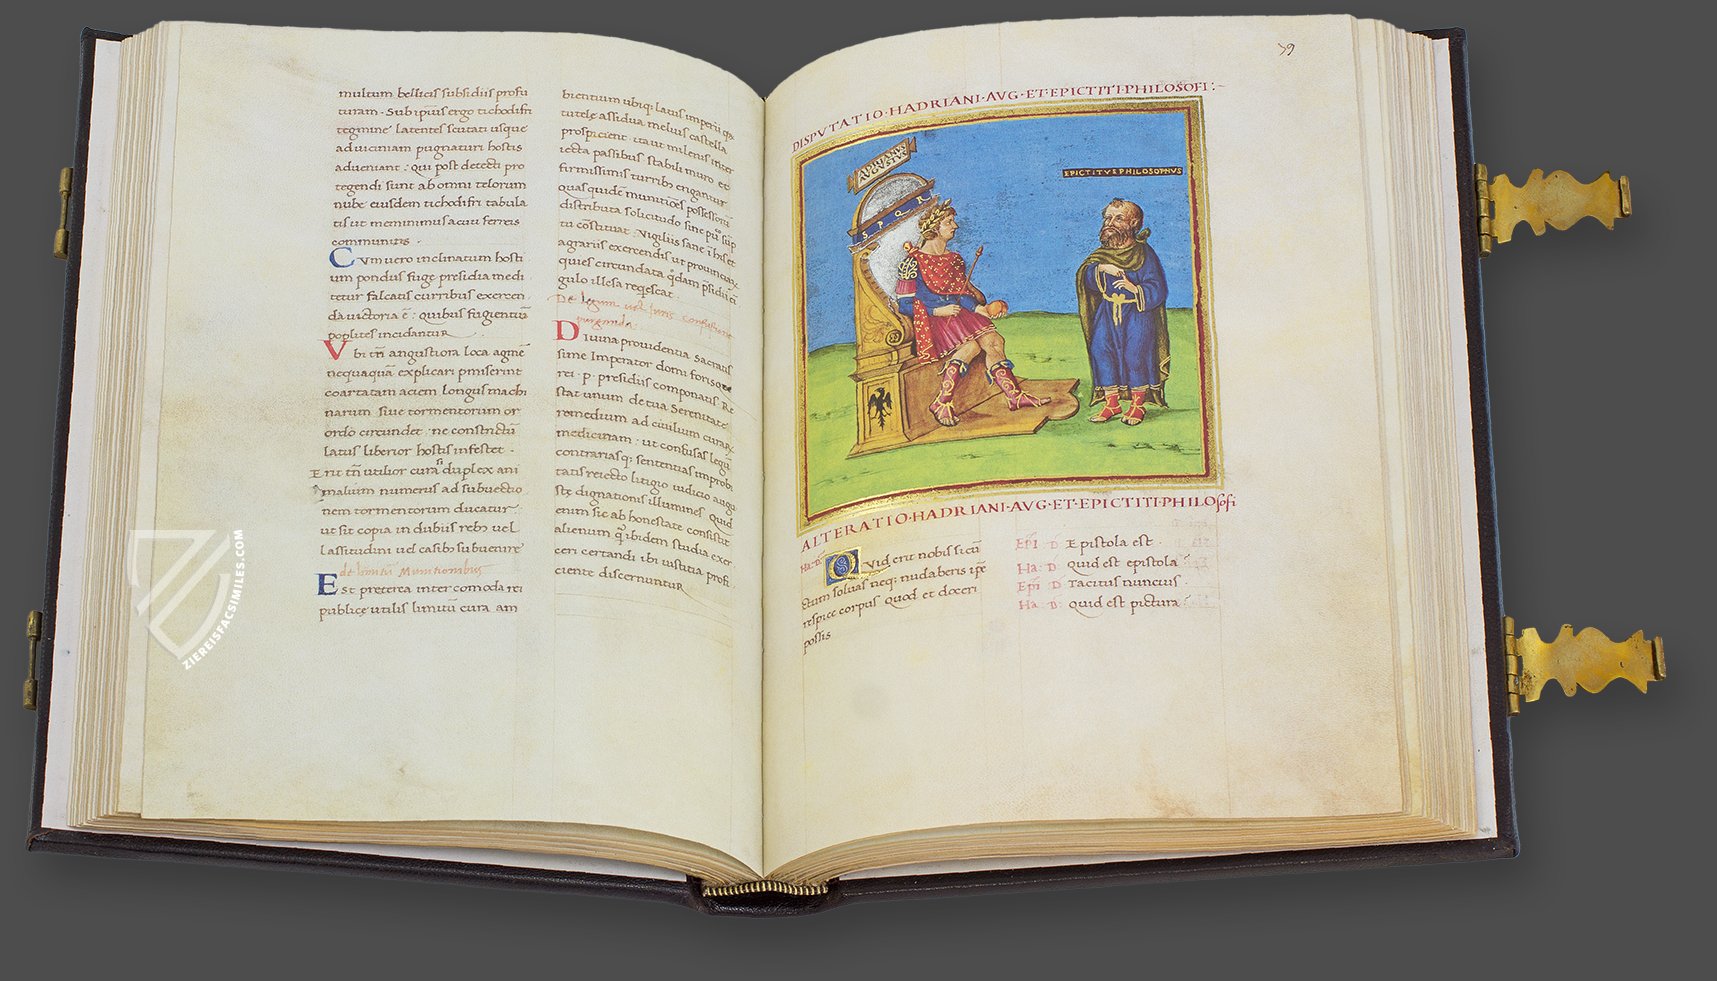 multum bellicis subsidiis profu
turam · Sub ipsius ergo tichodifri
tegmine latentes scutati usque
ad viciniam pugnaturi hostis
adveniant : qui post detecti pro
tegendi sunt ab omni telorum
nube eiusdem tichodifri tabula
tis ut meminimus acutis ferreis
communitis .
Cum vero inclinatum hosti
um pondus fuge presidia medi
tetur falcatis curribus exercen
da victoria ē : quibus fugientiū
poplites incidantur
Vbi tn̄ angustiora loca agmē
nequaquā explicari pmiserint
coartatam aciem longus machi
narum sive tormentorum or
ordo circundet : ne constrictū
latus liberior hostis infestet .
Erit tn̄ utilior cura si duplex ani
malium numerus ad subvectio
nem tormentorum ducatur
ut sit copia in dubiis reb; vel
lassitudini vel casib; subvenire
de limitū Munitionibus
Est preterea inter comoda rei
publicę utilis limitū cura am
bientium ubiq; latus imperii qᷓ
tutelę assidua melius castella
prospicient · ita ut milenis inter
iecta passibus stabili muro et
firmissimis turrib; erigantur
quas quidē munitiōes possessorū
distributa solicitudo sine pu° sūp
tu cōstituat : Vigiliis sane ī his et
agrariis exercendis ut provinciaꝝ
quies circundata qᷓdam p̄sidii cī
gulo illesa reqescat
De legum vel iuris confusione
purganda
Divina providentia Sacratis
sime Imperator domi forisque
rei · p · presidiis compositis Re
stat unum de tua Serenitate
remedium ad civilium curaꝝ
medicinam : ut confusas legū
contrariasq; sententias improbi
tatis reiecto litigio iudicio augu
stę dignationis illumines quid
enim sic ab honestate consistit
alienum qᷓ ibidem studia exer
ceri certandi ibi iustitia profi
ciente discernuntur
79
DISPVTATIO·HADRIANI·AVG·ET·EPICTITI·PHILOSOFI :~
ADRIANVS
AVGVSTVS
EPICTITVS PHILOSOPHVS
S P Q R
ALTERATIO·HADRIANI·AVG·ET·EPICTITI·PHILOsofi
Ha: D: Quid erit nobis si cū
ctum solvas neq; nudaberis ipē
respice corpus quod et doceri
possis
Epi D Epistola est .
Ha: D: quid est epistola
Epi D Tacitus nuncius .
Ha: D: quid est pictura
ZIEREISFACSIMILES.COM